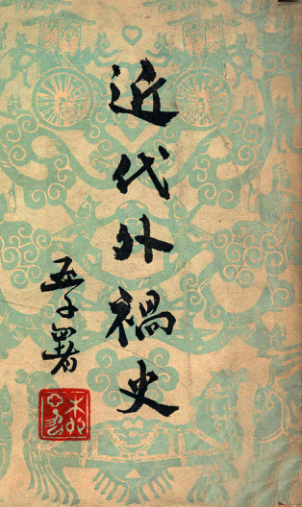 近代外禍史
孟子署